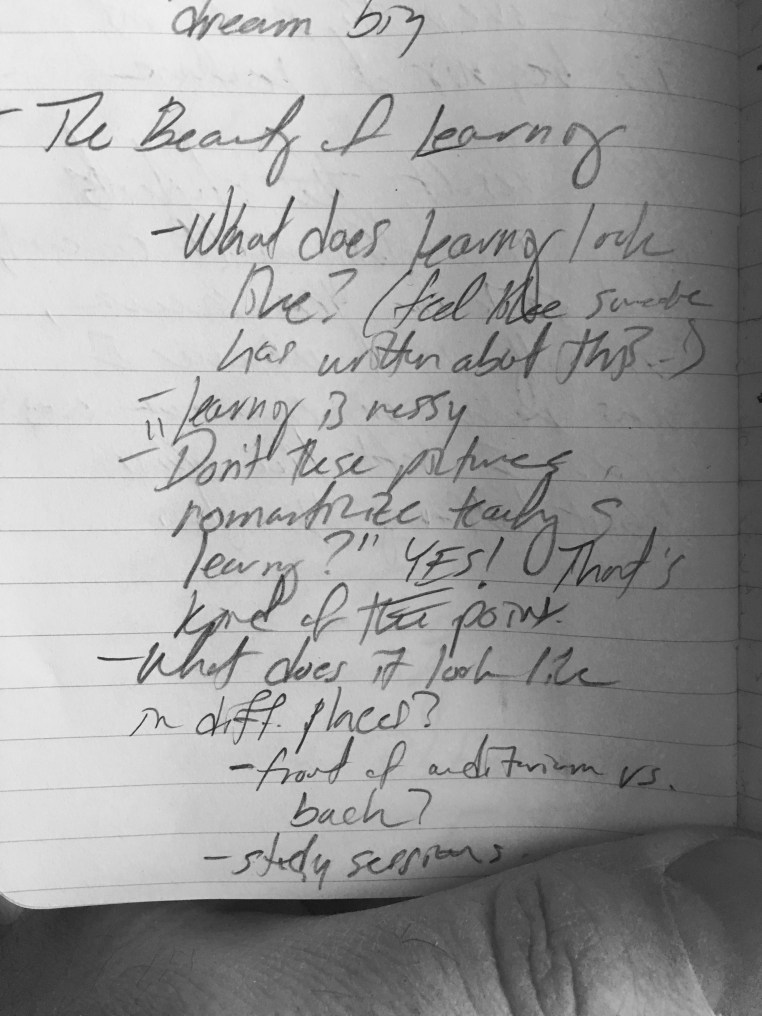 dream big
- The Beauty of Learning
- What does learning look
like? (feel like someone
has written about this...)
- Learning is messy
- "Don't these pictures
romanticize teaching &
learning?" YES! That's
kind of the point.
- What does it look like
in diff. places?
- front of auditorium vs.
back?
- study sessions